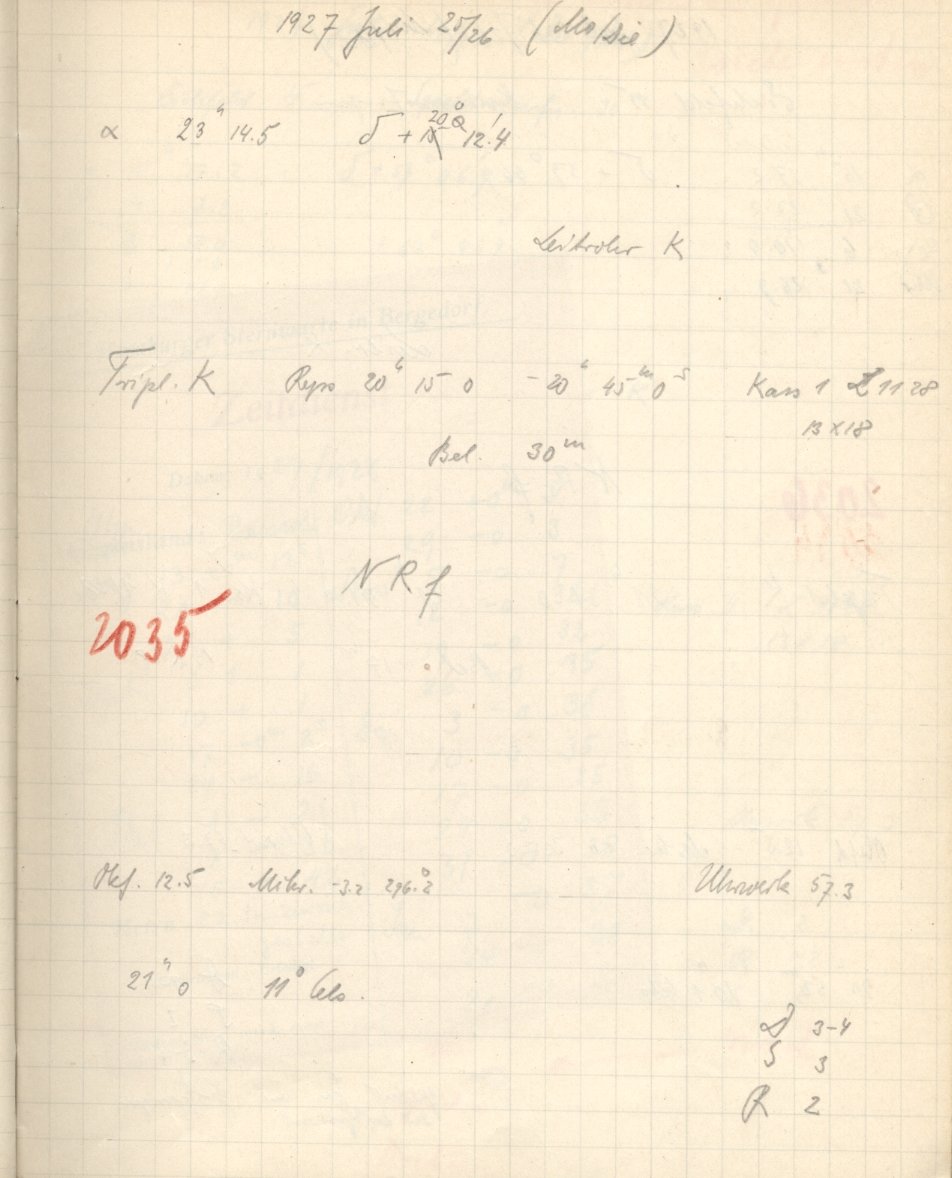 1927 Juli 25/26 (Mo/Die)
α 23ʰ 14.5 δ + 20° 12.'4
Leitrohr K
Tripl. K 20ʰ 15 0 - 20ʰ 45ᵐ 0ˢ Kass 1 Z 1128
13 x 18
Bel. 30ᵐ
N R f
2035
Okf. 12.5 Mikr. -3.2 296.°2 Uhrwerk 57.3
21ʰ 0 11° Cels.
3-4
S 3
R 2